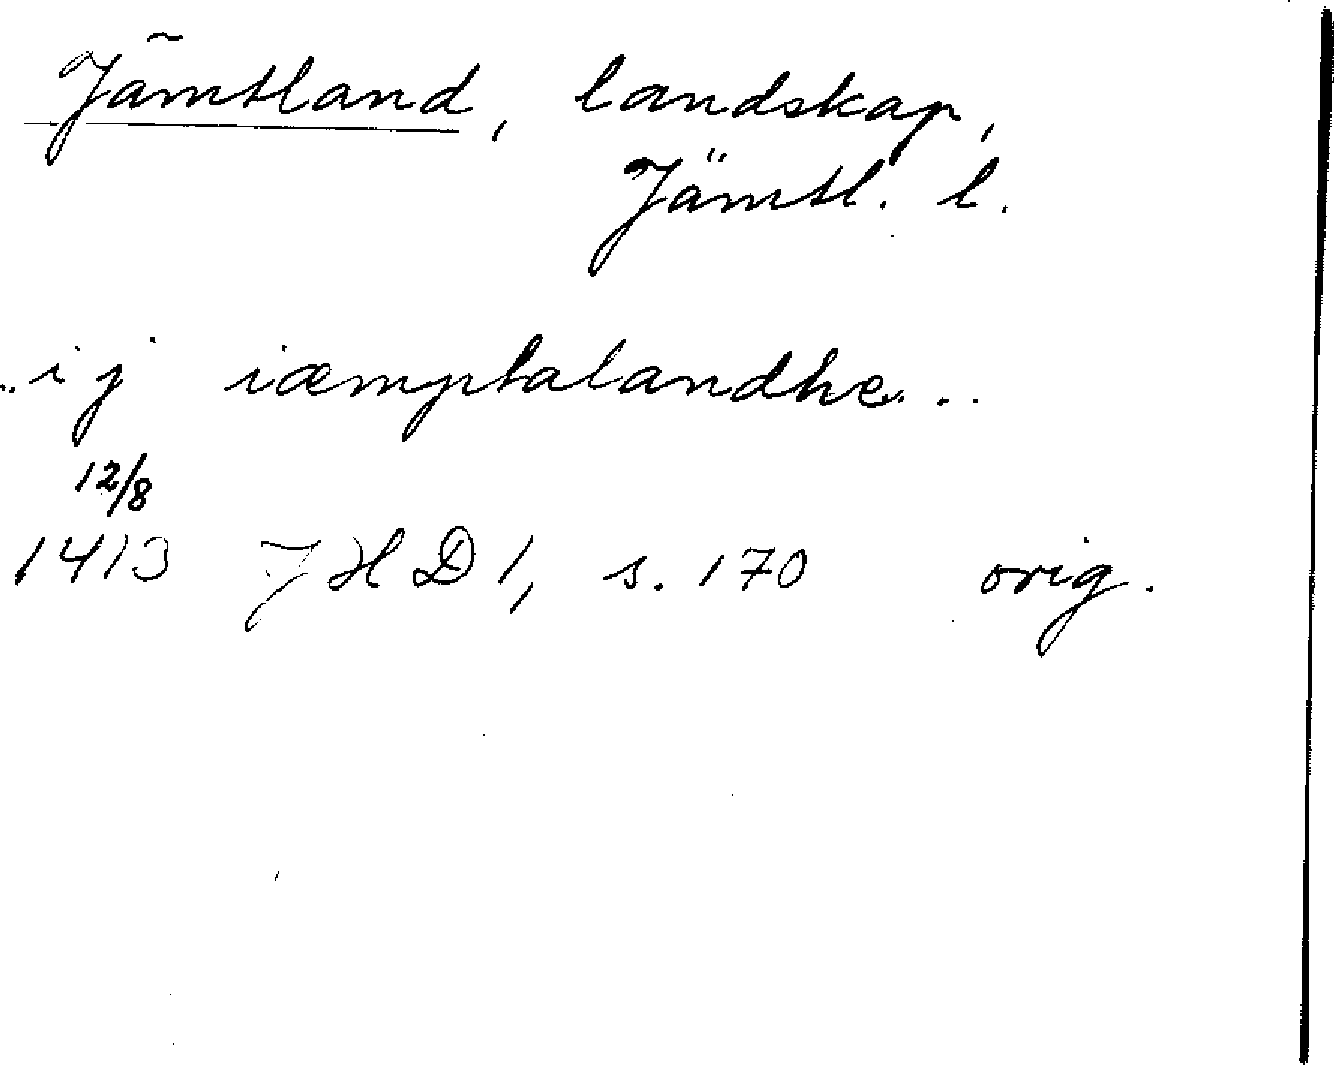 Jämtland, landskap,
Jämtl. l.
..i j iæmptalandhe...
12/8
1413 JHD 1, s. 170 orig.